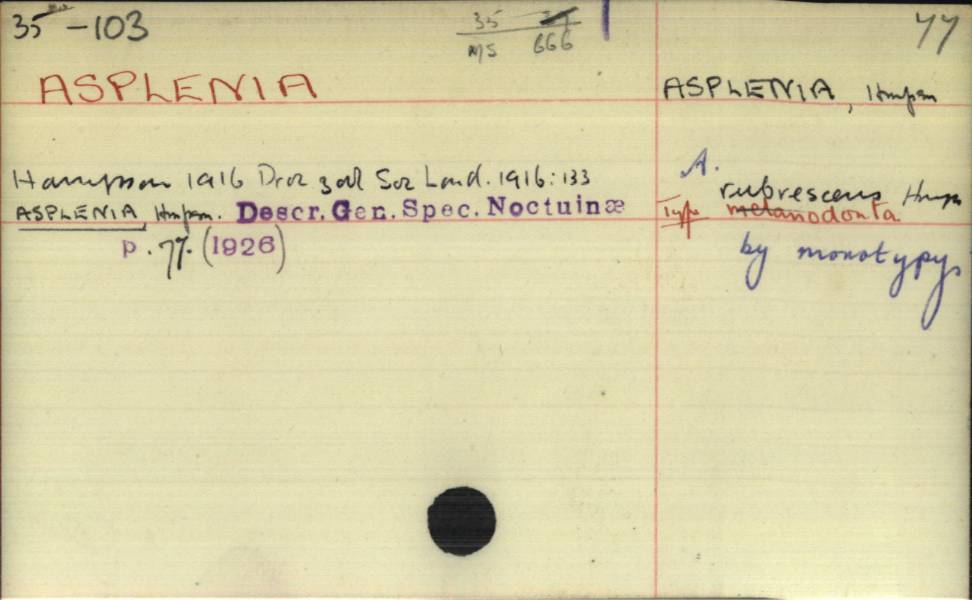 35 -103
35
MS 666
77
ASPLENIA
ASPLENIA, Hmpsn
Hampson 1916 Proc zool Soc Lond. 1916: 133
ASPLENIA, Hmpsn. Descr. Gen. Spec. Noctuinæ
p. 77. (1926)
A.
rubrescens Hmpsn
Type melanodonta
by monotypy